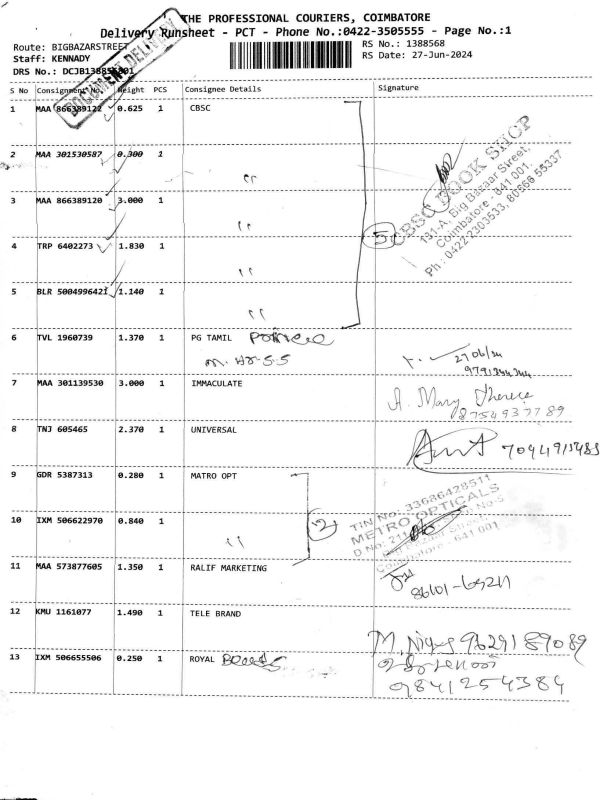 THE PROFESSIONAL COURIERS, COIMBATORE
Delivery Runsheet - PCT - Phone No.:0422-3505555 - Page No.:1
Route: BIGBAZARSTREET
RS No.: 1388568
Staff: KENNADY
RS Date: 27-Jun-2024
DRS No.: DCJB138856801
DOCUMENT DELIVERY
S No Consignment No. Weight PCS Consignee Details Signature
1 MAA 866389122 0.625 1 CBSC
2 MAA 301530587 0.300 1 "
3 MAA 866389120 3.000 1 "
4 TRP 6402273 1.830 1 "
5 BLR 5004996421 1.140 1 "
5
CBSC BOOK SHOP
131-A, Big Bazaar Street,
Coimbatore - 641 001.
Ph : 0422 2303533, 80566 55337
6 TVL 1960739 1.370 1 PG TAMIL
27/06/24
9791344344
7 MAA 301139530 3.000 1 IMMACULATE
A. Mary Therese
8754937789
8 TNJ 605465 2.370 1 UNIVERSAL
9 GDR 5387313 0.280 1 MATRO OPT
10 IXM 506622970 0.840 1 "
2
TIN No: 33686428511
METRO OPTICALS
Coimbatore - 641 001
11 MAA 573877605 1.350 1 RALIF MARKETING
12 KMU 1161077 1.490 1 TELE BRAND
9629189089
13 IXM 506655506 0.250 1 ROYAL
9841254384